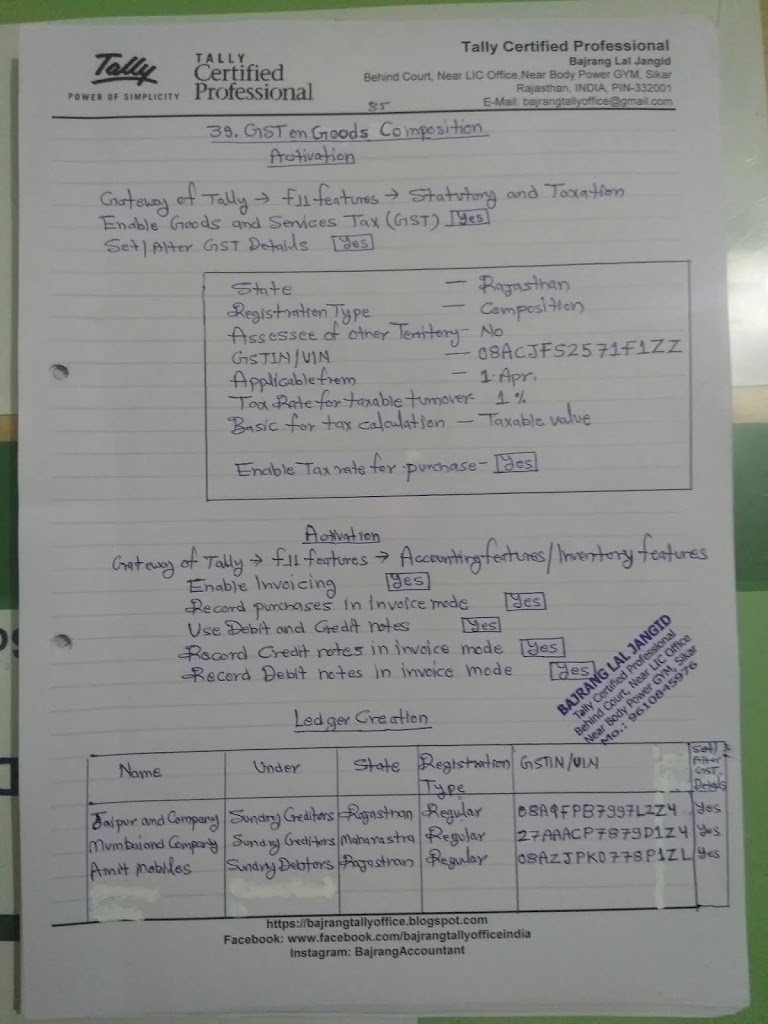 Tally
POWER OF SIMPLICITY
TALLY
Certified
Professional
Tally Certified Professional
Bajrang Lal Jangid
Behind Court, Near LIC Office,Near Body Power GYM, Sikar
Rajasthan, INDIA, PIN-332001
E-Mail: bajrangtallyoffice@gmail.com
85
39. GST on Goods Composition
Activation
Gateway of Tally → F11 features → Statutory and Taxation
Enable Goods and Services Tax (GST) Yes
Set/Alter GST Details Yes
State — Rajasthan
Registration Type — Composition
Assessee of other Territory - No
GSTIN/UIN — 08ACJFS2571F1ZZ
Applicable from — 1 Apr.
Tax Rate for taxable turnover - 1 %
Basic for tax calculation — Taxable value
Enable Tax rate for purchase - Yes
Activation
Gateway of Tally → F11 features → Accounting features/Inventory features
Enable Invoicing Yes
Record purchases in invoice mode Yes
Use Debit and Credit notes Yes
Record Credit notes in invoice mode Yes
Record Debit notes in invoice mode Yes
BAJRANG LAL JANGID
Tally Certified Professional
Behind Court, Near LIC Office
Near Body Power GYM, Sikar
Mo.: 9610845976
Ledger Creation
Name Under State Registration Type GSTIN/UIN Set/Alter GST Details
Jaipur and Company Sundry Creditors Rajasthan Regular 08AQFPB7997L2Z4 Yes
Mumbai and Company Sundry Creditors Maharastra Regular 27AAACP7879D1Z4 Yes
Amit Mobiles Sundry Debtors Rajasthan Regular 08AZJPK0778P1ZL Yes
https://bajrangtallyoffice.blogspot.com
Facebook: www.facebook.com/bajrangtallyofficeindia
Instagram: BajrangAccountant